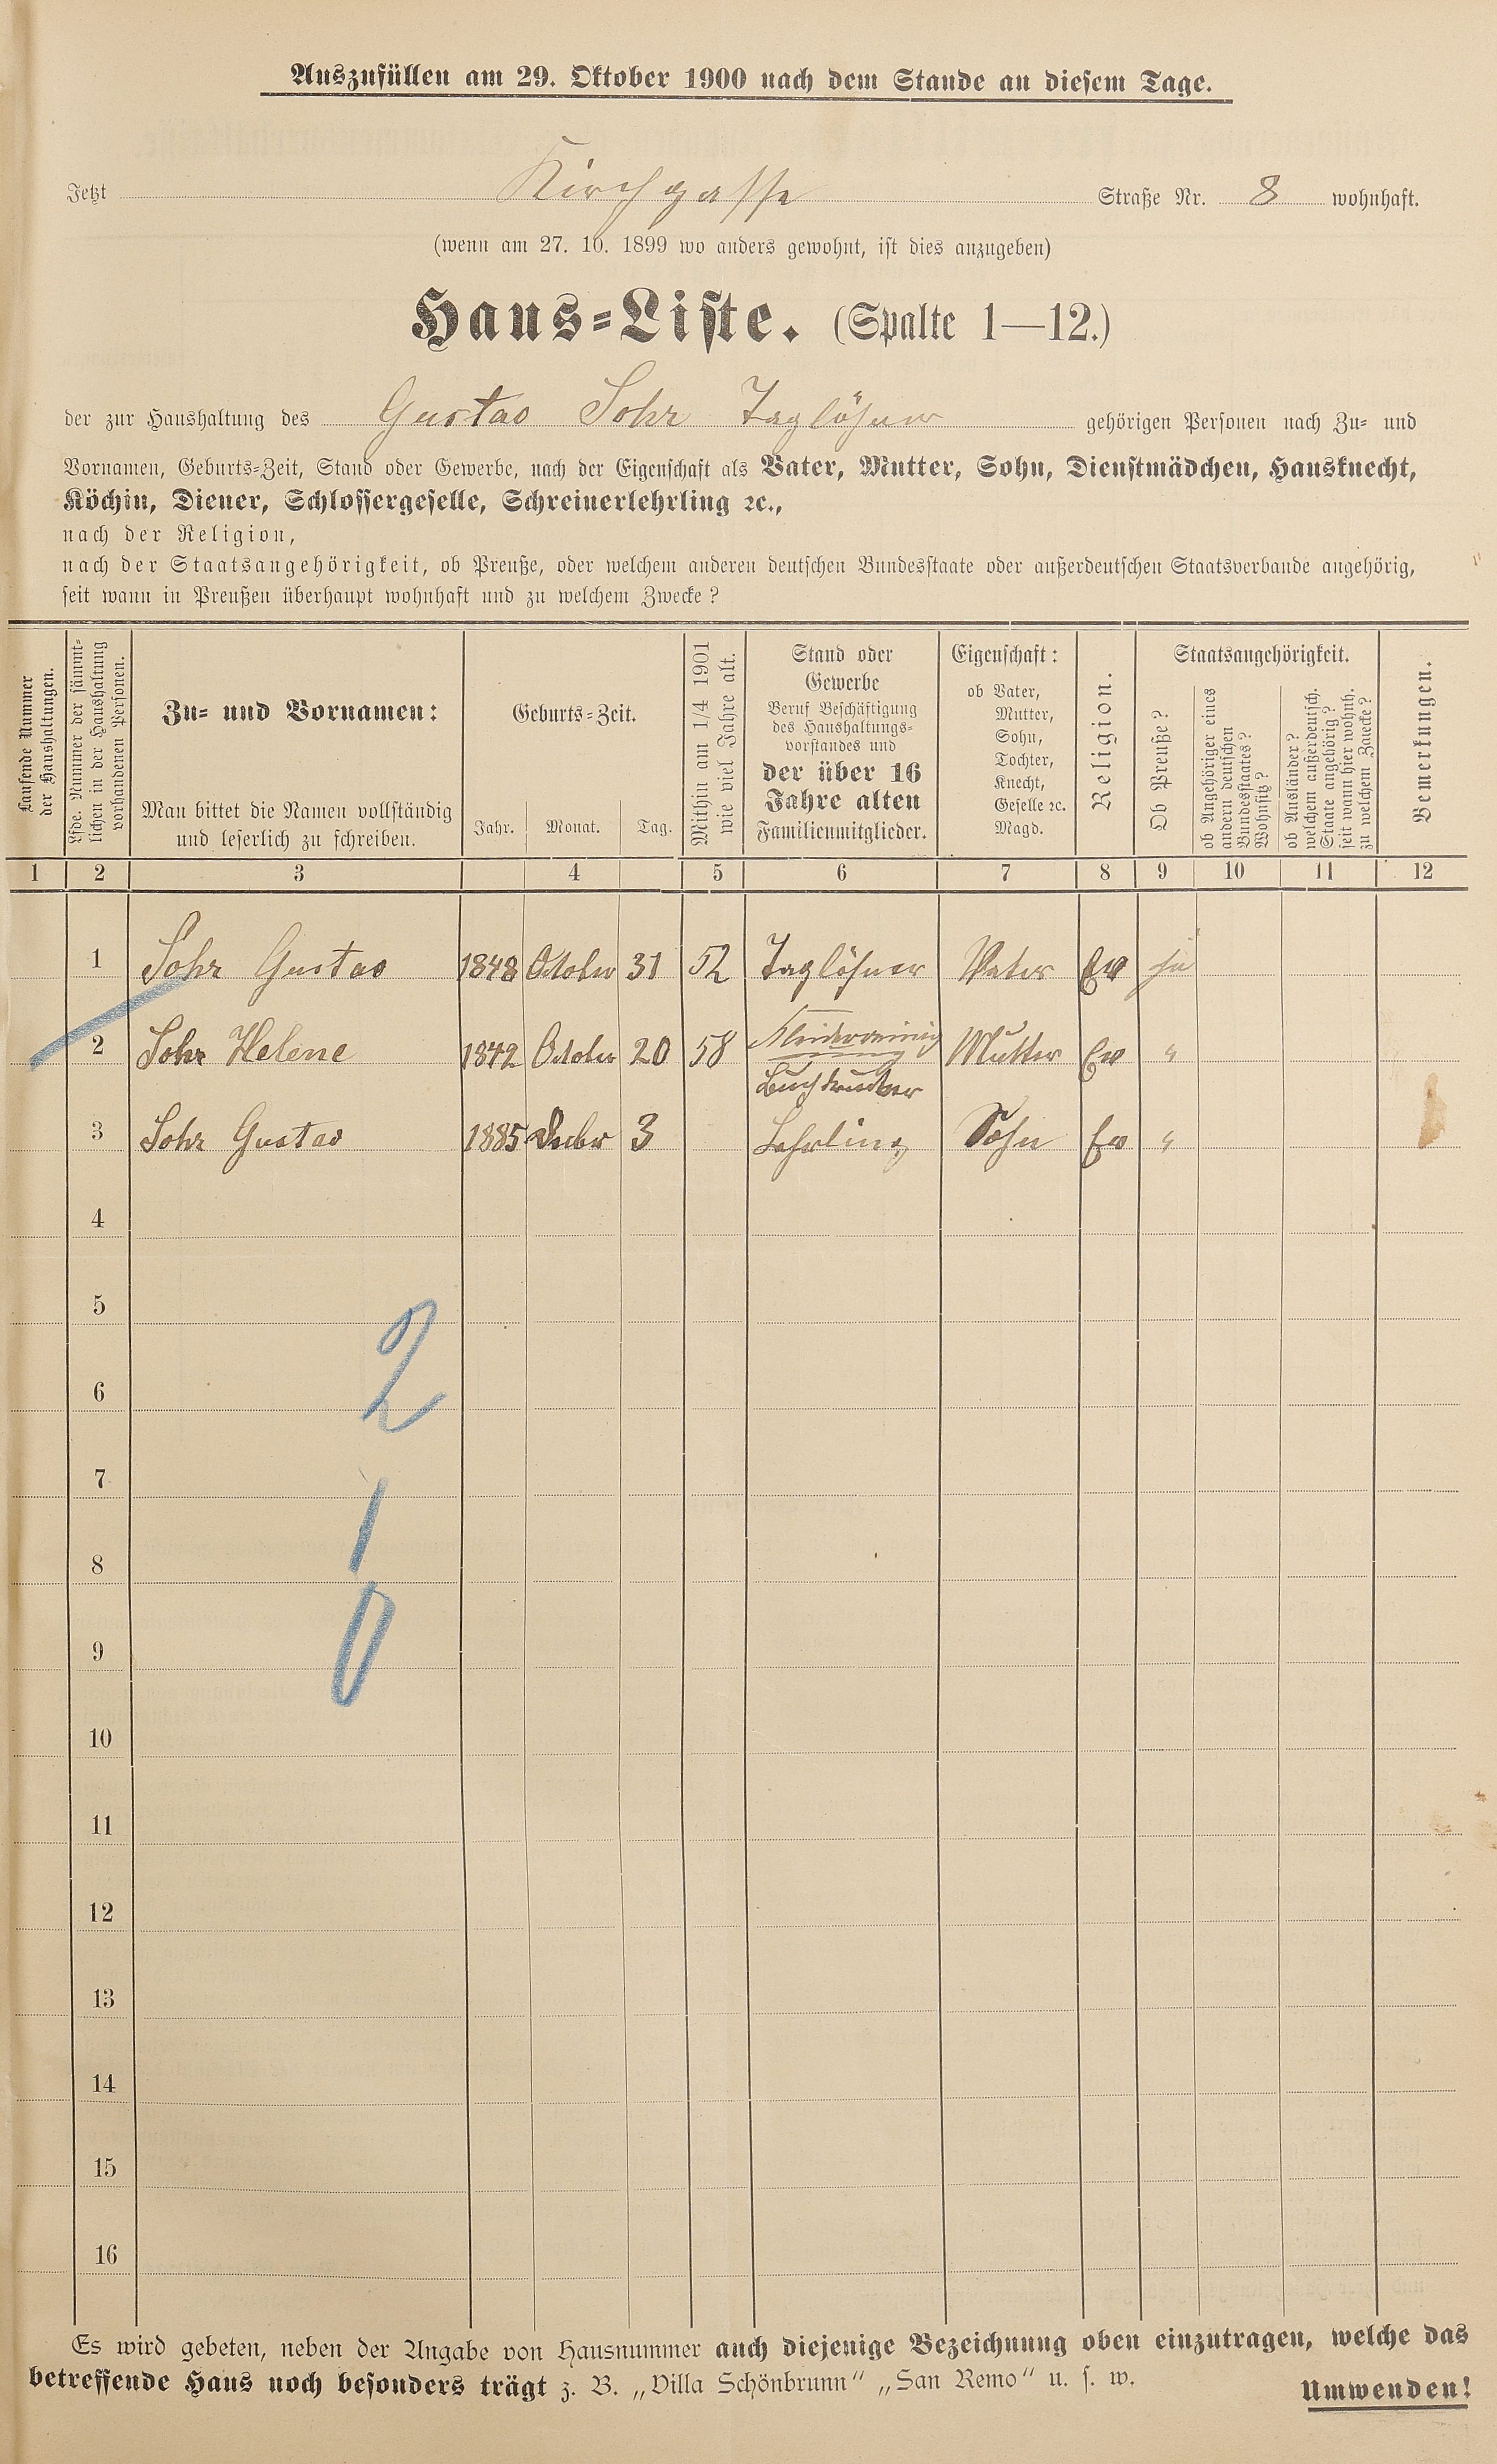 Auszufüllen am 29. Oktober 1900 nach dem Stande an diesem Tage.
Jetzt Kirchgasse Straße Nr. 8 wohnhaft.
(wenn am 27. 10. 1899 wo anders gewohnt, ist dies anzugeben)
Haus-Liste. (Spalte 1—12.)
der zur Haushaltung des Gustav Sohr Taglöhner gehörigen Personen nach Zu- und
Vornamen, Geburts-Zeit, Stand oder Gewerbe, nach der Eigenschaft als Vater, Mutter, Sohn, Dienstmädchen, Hausknecht,
Köchin, Diener, Schlossergeselle, Schreinerlehrling ꝛc.,
nach der Religion,
nach der Staatsangehörigkeit, ob Preuße, oder welchem anderen deutschen Bundesstaate oder außerdeutschen Staatsverbande angehörig,
seit wann in Preußen überhaupt wohnhaft und zu welchem Zwecke?
Laufende Nummer
der Haushaltungen.
Lfde. Nummer der sämmt-
lichen in der Haushaltung
vorhandenen Personen.
Zu- und Vornamen:
Man bittet die Namen vollständig
und leserlich zu schreiben.
Geburts-Zeit.
Jahr. Monat. Tag.
Mithin am 1/4 1901
wie viel Jahre alt.
Stand oder
Gewerbe
Beruf Beschäftigung
des Haushaltungs-
vorstandes und
der über 16
Jahre alten
Familienmitglieder.
Eigenschaft:
ob Vater,
Mutter,
Sohn,
Tochter,
Knecht,
Geselle ꝛc.
Magd.
Religion.
Staatsangehörigkeit.
Ob Preuße?
ob Angehöriger eines
andern deutschen
Bundesstaates?
Wohnsitz?
ob Ausländer?
welchem außerdeutsch.
Staate angehörig?
seit wann hier wohnh.
zu welchem Zwecke?
Bemerkungen.
1 2 3 4 5 6 7 8 9 10 11 12
1 Sohr Gustav 1848 October 31 52 Taglöhner Vater Ev ja
2 Sohr Helene 1842 October 20 58 Mutter Ev "
Buchdrucker
3 Sohr Gustav 1885 Decbr 3 Lehrling Sohn Ev "
4
5
2
6
7
1
8
0
9
10
11
12
13
14
15
16
Es wird gebeten, neben der Angabe von Hausnummer auch diejenige Bezeichnung oben einzutragen, welche das
betreffende Haus noch besonders trägt z. B. „Villa Schönbrunn" „San Remo" u. s. w.
Umwenden!